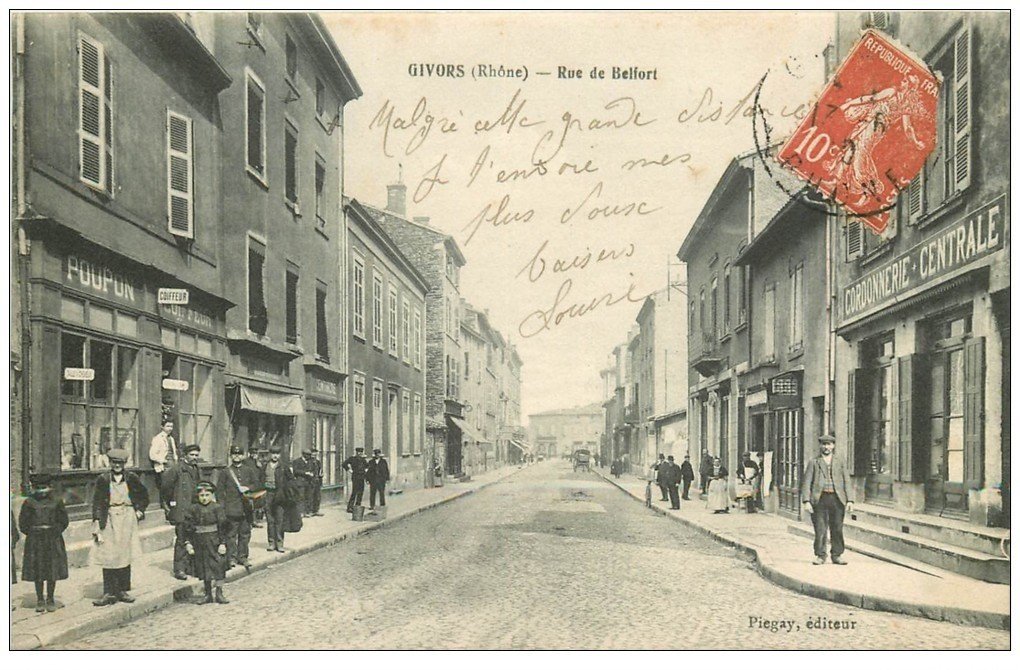 GIVORS (Rhône) — Rue de Belfort
Malgré cette grande distance
je t'envoie mes
plus doux
baisers
Louise
REPUBLIQUE FRA
10c
RHONE
POUPON
COIFFEUR
CORDONNERIE - CENTRALE
Piegay, éditeur